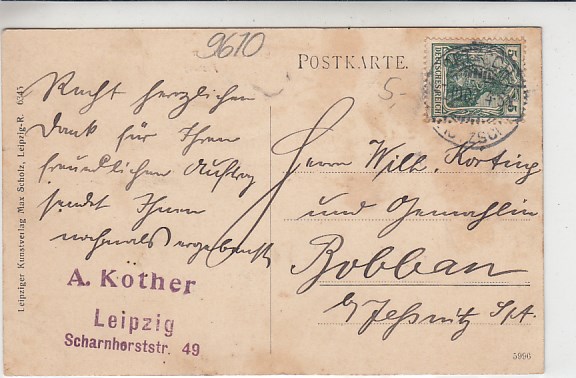 9610
POSTKARTE.
5,-
Recht herzlichen
Dank für Ihren
freundlichen Auftrag
sendet Ihnen
nochmals ergebenst
A. Köther
Leipzig
Scharnhorststr. 49
5
DEUTSCHES REICH
5
Herrn Wilh. Korting
und Gemahlin
Bobbau
b/ Jeßnitz S/A.
Leipziger Kunstverlag Max Scholz, Leipzig-R. 6345
5996